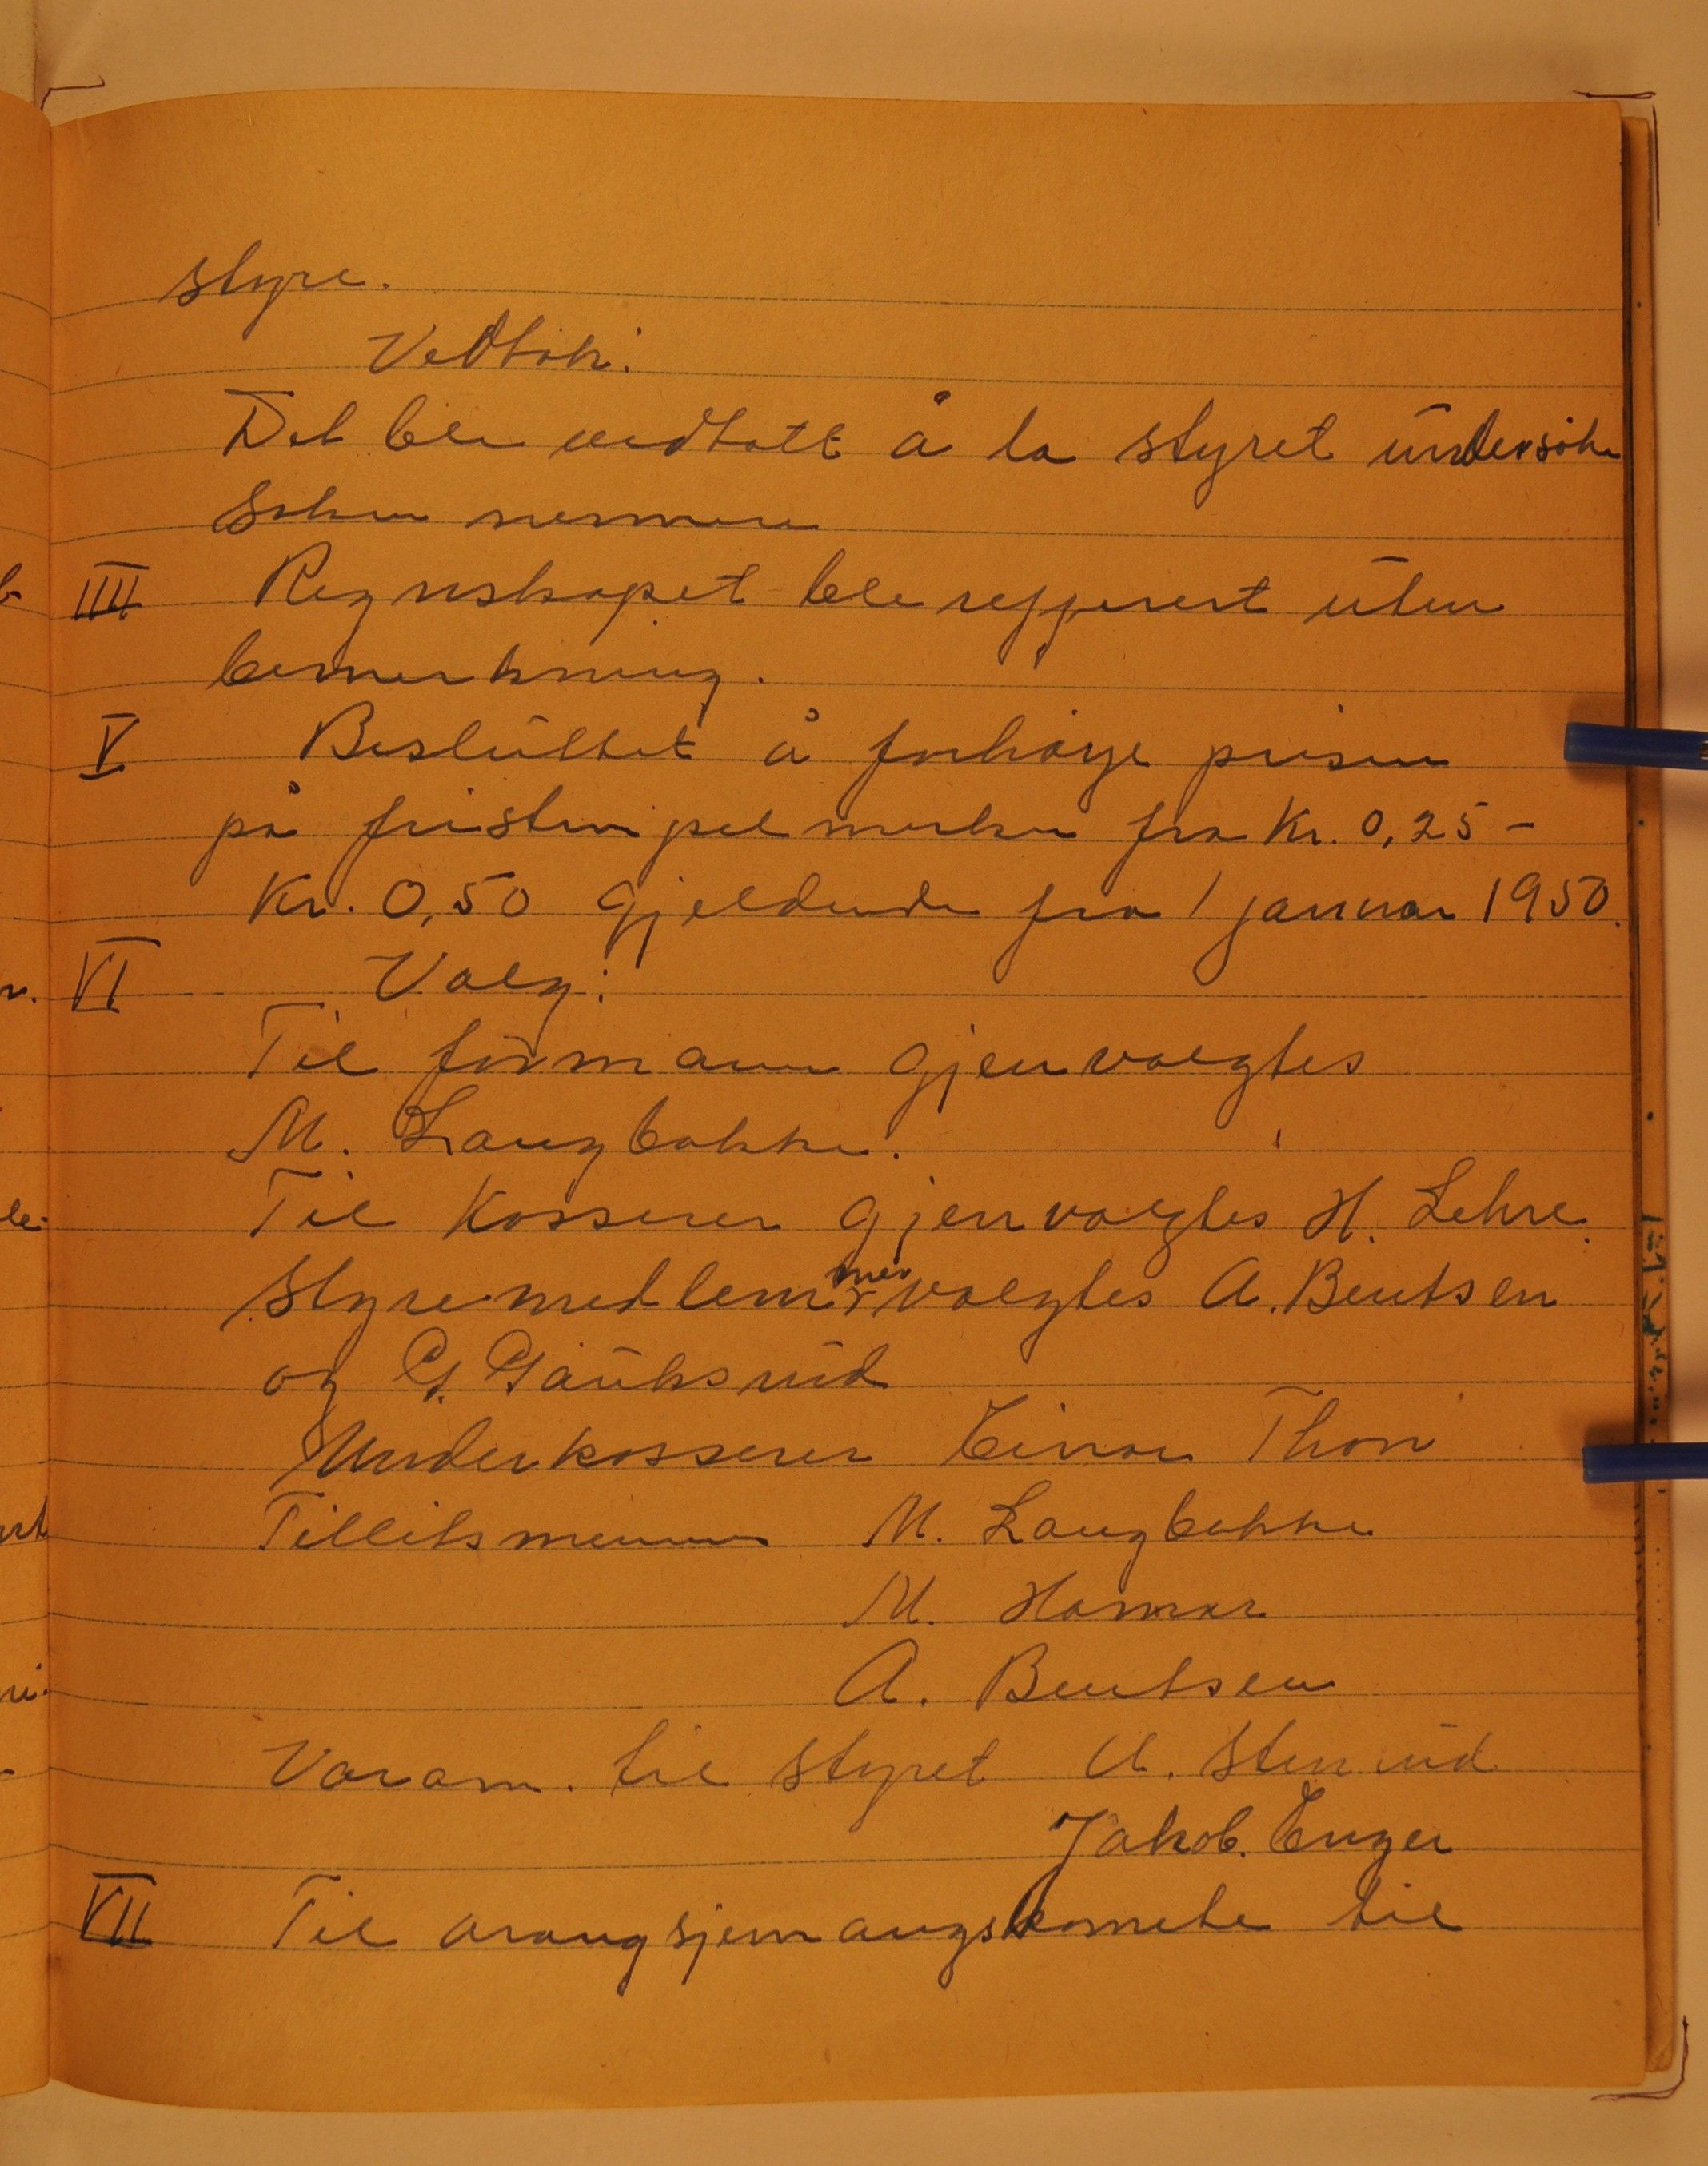 styre.
Vedtak:
Det ble vedtatt å la styret undersöke
saken nermere
IIII Regnskapet ble refferert uten
bemerkning.
V Besluttet å forhöye prisen
på fristempelmerker fra Kr. 0,25 -
Kr. 0,50 gjeldende fra 1 januar 1950.
VI Valg:
Til formann gjenvalgtes
M. Langbakke.
Til Kasserer gjenvalgtes H. Lehre.
Styremedlemmer valgtes A. Bentsen
og G. Gauksrud
Underkasserer Einar Thon
Tillitsmenn M. Langbakke
M. Hamar
A. Bentsen
Varam. til styret A. Stensrud
Jakob. Enger
VII Til arangsjemangskomete til